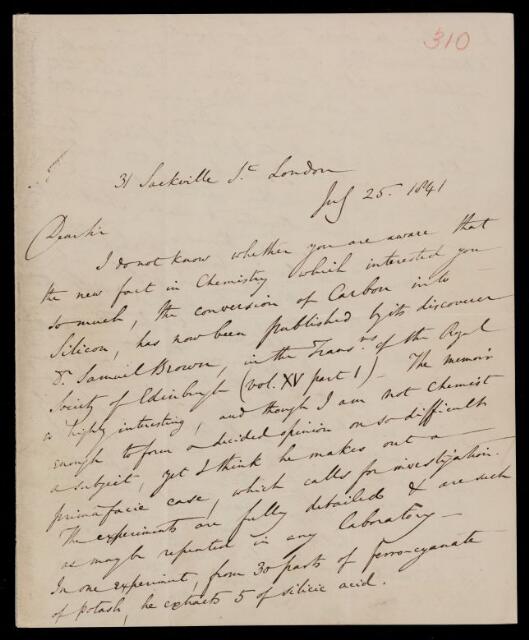 310
31 Sackville St. London
July 25. 1841
Dear Sir
I do not know whether you are aware that
the new fact in Chemistry which interested you
so much, the conversion of Carbon into
Silicon, has now been published by its discoverer
Dr. Samuel Brown, in the Transns of the Royal
Society of Edinburgh (vol. XV part 1) – The memoir
is highly interesting, and though I am not Chemist
enough to form a decided opinion on so difficult
a subject, yet I think he makes out a
prima facie case, which calls for investigation.
The experiments are fully detailed & are such
as may be repeated in any laboratory –
In one experiment, from 30 parts of Ferrocyanate
of potash, he extracts 5 of silicic acid.